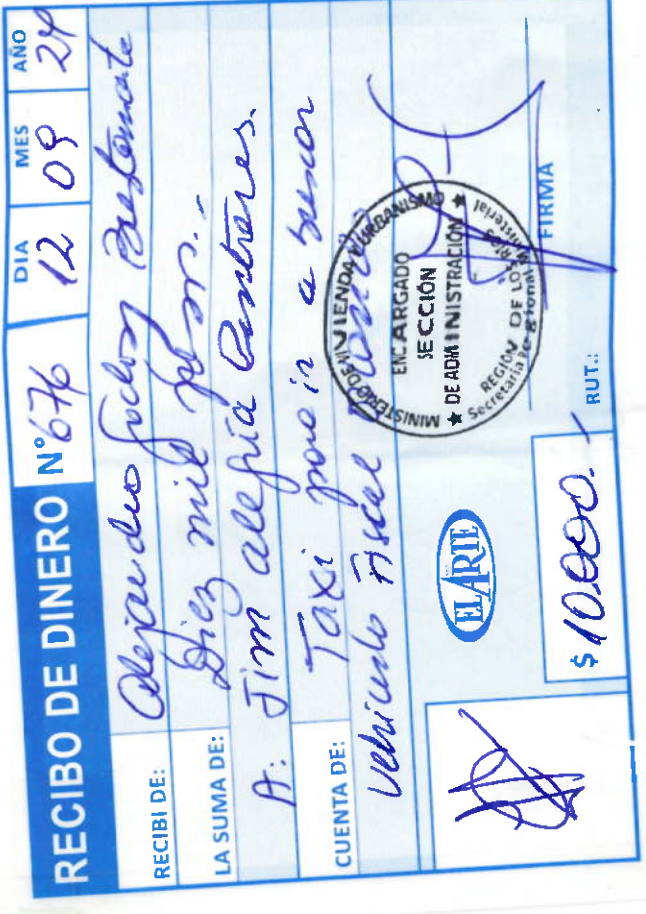 RECIBO DE DINERO N° 676
DIA 12 MES 09 AÑO 24
RECIBI DE: Alejandro
LA SUMA DE: Diez mil pesos.-
A: Jim Alegría Contreras.
CUENTA DE: Taxi para ir a buscar
Vehiculo Fiscal
MINISTERIO DE VIVIENDA Y URBANISMO
ENCARGADO
SECCIÓN
★ DE ADMINISTRACIÓN ★
REGIÓN DE LOS RÍOS
Secretaría Regional Ministerial
EL ARTE
FIRMA
$ 10.000.-
RUT.: